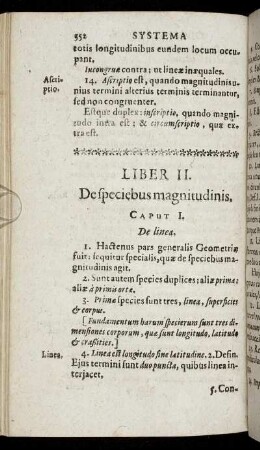 552 SYSTEMA
totis longitudinibus eundem locum occu-
pant.
Incongruæ contra: ut lineæ inæquales.
Ascri-
ptio.
14. Ascriptio est, quando magnitudinis u-
nius termini alterius terminis terminantur,
sed non congruenter.
Estque duplex: inscriptio, quando magni-
tudo intra est; & circumscriptio, quæ ex-
tra est.
LIBER II.
De speciebus magnitudinis.
CAPUT I.
De linea.
1. Hactenus pars generalis Geometriæ
fuit: sequitur specialis, quæ de speciebus ma-
gnitudinis agit.
2. Sunt autem species duplices: aliæ primæ:
aliæ à primis ortæ.
3. Primæ species sunt tres, linea, superficies
& corpus.
[Fundamentum harum specierum sunt tres di-
mensiones corporum, quæ sunt longitudo, latitudo
& crassities.]
Linea.
4. Linea est longitudo sine latitudine. 2. Defin.
Ejus termini sunt duo puncta, quibus linea in-
terjacet.
5. Con-